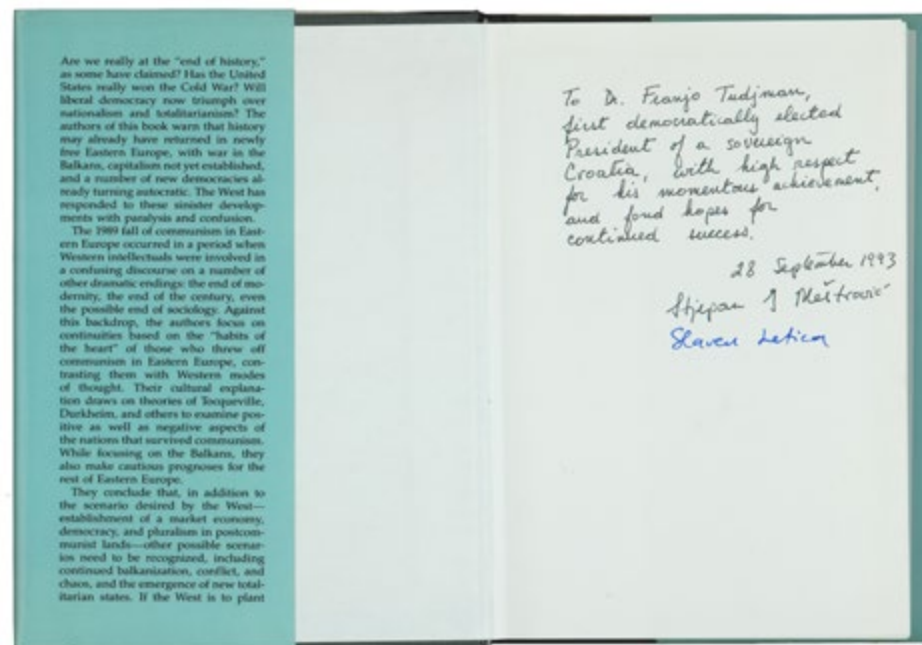 Are we really at the "end of history,"
as some have claimed? Has the United
States really won the Cold War? Will
liberal democracy now triumph over
nationalism and totalitarianism? The
authors of this book warn that history
may already have returned in newly
free Eastern Europe, with war in the
Balkans, capitalism not yet established,
and a number of new democracies al-
ready turning autocratic. The West has
responded to these sinister develop-
ments with paralysis and confusion.
The 1989 fall of communism in East-
ern Europe occurred in a period when
Western intellectuals were involved in
a confusing discourse on a number of
other dramatic endings: the end of mo-
dernity, the end of the century, even
the possible end of sociology. Against
this backdrop, the authors focus on
continuities based on the "habits of
the heart" of those who threw off
communism in Eastern Europe, con-
trasting them with Western modes
of thought. Their cultural explana-
tion draws on theories of Tocqueville,
Durkheim, and others to examine pos-
itive as well as negative aspects of
the nations that survived communism.
While focusing on the Balkans, they
also make cautious prognoses for the
rest of Eastern Europe.
They conclude that, in addition to
the scenario desired by the West—
establishment of a market economy,
democracy, and pluralism in postcom-
munist lands—other possible scenar-
ios need to be recognized, including
continued balkanization, conflict, and
chaos, and the emergence of new total-
itarian states. If the West is to plant
To Dr. Franjo Tudjman,
first democratically elected
President of a sovereign
Croatia, with high respect
for his momentous achievement,
and fond hopes for
continued success.
28 September 1993
Stjepan J Meštrović
Slaven Letica